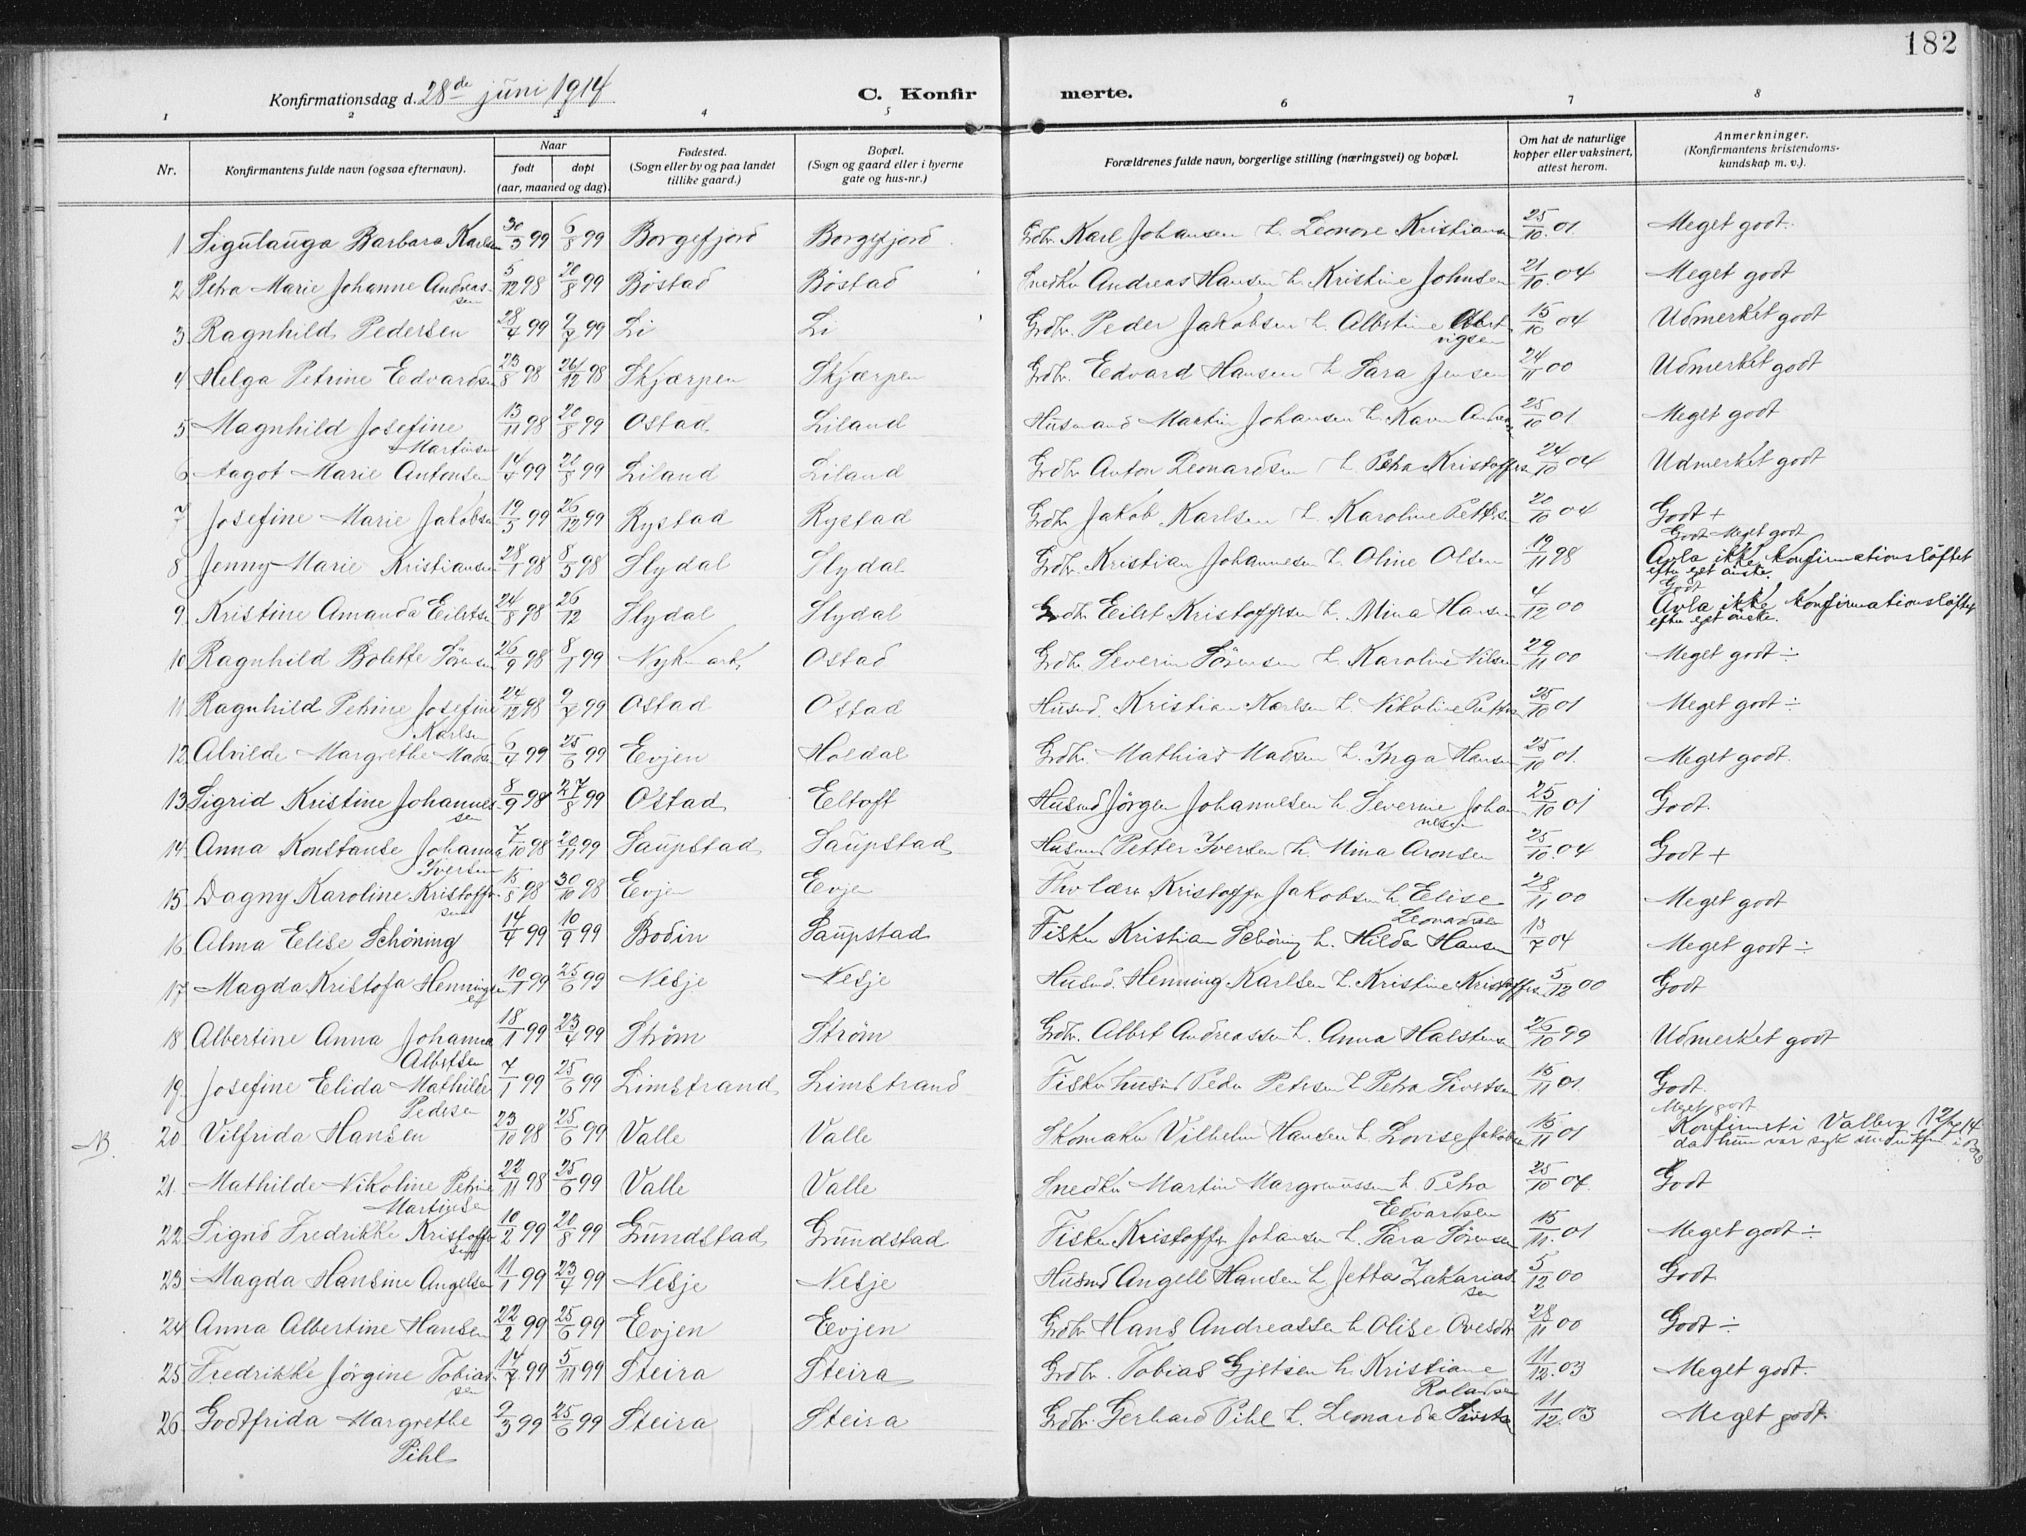 182
Konfirmationsdag d. 28de juni 1914
C. Konfirmerte.
1 2 3 4 5 6 7 8
Nr. Konfirmantens fulde navn (ogsaa efternavn). Naar født døpt (aar, maaned og dag). Fødested. (Sogn eller by og paa landet tillike gaard.) Bopæl. (Sogn og gaard eller i byerne gate og hus-nr.) Forældrenes fulde navn, borgerlige stilling (næringsvei) og bopæl. Om hat de naturlige kopper eller vaksinert, attest herom. Anmerkninger. (Konfirmantens kristendomskundskap m. v.).
1 Sigulauga Barbara Karlsen 30/3 99 6/8 99 Borgefjord Borgefjord Grdbr. Karl Johansen h. Leonore Kristiansen 25/10 01 Meget godt.
2 Petra Marie Johanne Andreassen 5/12 98 20/8 99 Bøstad Bøstad Snedker Andreas Hansen h. Kristine Johnsen 21/10 04 Meget godt
3 Ragnhild Pedersen 28/4 99 9/7 99 Li Li Grdbr. Peder Jakobsen h. Albertine 15/10 04 Udmerket godt
4 Helga Petrine Edvardsen 23/8 98 26/12 98 Skjærpen Skjærpen Grdbr. Edvard Hansen h. Sara Jensen 24/11 00 Udmerket godt
5 Magnhild Josefine Martinsen 13/11 98 20/8 99 Ostad Liland Husmand Martin Johansen h. Karen 25/10 01 Meget godt
6 Aagot Marie Antonsen 14/4 99 21/8 99 Liland Liland Grdbr Anton Leonardsen h. Petra Kristoffers 24/10 04 Udmerket godt
7 Josefine Marie Jakobsen 19/5 99 26/12 99 Rystad Rystad Grdbr Jakob Karlsen h. Karoline Pettersen 20/10 04 Godt +
8 Jenny Marie Kristiansen 28/1 98 8/5 98 Slydal Slydal Grdbr. Kristian Johannesen h. Oline Olsen 19/11 98 Godt Meget godt Avla ikke konfirmationsløftet efter eget ønske.
9 Kristine Amanda Eilertsen 24/8 98 26/12 Slydal Slydal Grdbr Eilert Kristoffersen h. Mina Hansen 4/12 00 Godt Avla ikke konfirmationsløftet efter eget ønske.
10 Ragnhild Bolette Sørensen 26/9 98 8/1 99 Nykmark Ostad Grdbr Severin Sørensen h. Karoline Nilsen 29/11 00 Meget godt ÷
11 Ragnhild Petrine Josefine Karlsen 24/12 98 9/7 99 Ostad Ostad Husmd. Kristian Karlsen h. Nikoline Petters 25/10 01 Meget godt ÷
12 Alvilde Margrethe Madsen 6/4 99 25/6 99 Evjen Holdal Grdbr. Mathias Madsen h. Inga Hansen 25/10 01. Meget godt.
13 Sigrid Kristine Johannessen 8/9 98 27/8 99 Ostad Eltoft Husmd Jørgen Johannesen h. Severine Johannesen 25/10 01 Godt.
14 Anna Konstanse Johanna Iversen 7/10 98 20/11 99 Saupstad Saupstad Husmd Petter Iversen h. Mina Aronsen 25/10 04 Godt +
15 Dagny Karoline Kristoffersen 15/8 98 30/10 98 Evje Evje Kristoffer Jakobsen h. Elise Leonardsen 28/11 00 Meget godt
16 Alma Elise Schöning 14/4 99 10/9 99 Bodin Saupstad Fisker Kristian Schöning h. Hilda Hansen 13/7 04 Meget godt ÷
17 Magda Kristofa Henningsen 10/1 99 25/6 99 Nesje Nesje Husmd. Henning Karlsen h. Kristine Kristoffers 5/12 00 Godt
18 Albertine Anna Johanna Albertsen 18/1 99 23/4 99 Strøm Strøm Grdbr. Albert Andreassen h. Anna Halstensen 26/10 99 Udmerket godt
19 Josefine Elida Mathilde Pedersen 7/1 99 25/6 99 Limstrand Limstrand Fisker husmd Peder Petersen h. Petra Sivertsen 15/11 01. Godt.
NB. 20 Vilfrida Hansen 23/10 98 25/6 99 Valle Valle Skomaker Vilhelm Hansen h. Lovise Jakobsen 15/11 01 Meget godt Konfirmert i Valberg 12/7 14 da hun var syk under konf. i
21 Mathilde Nikoline Petrine Martinsen 22/11 98 25/6 99 Valle Valle Snedker Martin h. Petra Edvardsen 25/10 04. Godt
22 Signd Fredrikke Kristoffersen 10/2 99 20/8 99 Grundstad Grundstad Fisker Kristoffer Johansen h. Sara Sørensen 15/11 01 Meget godt ÷
23 Magda Hansine Angelsen 11/1 99 23/4 99 Nesje Nesje Husmd Angell Hansen h. Jetta Zakariassen 5/12 00 Godt.
24 Anna Albertine Hansen 22/2 99 25/6 99 Evjen Evjen Grdbr Hans Andreassen h. Olise Ovesdtr 28/11 00 Godt ÷
25 Fredrikke Jørgine Tobiassen 14/7 99 5/11 99 Steira Steira Grdbr. Tobias Gjertsen h. Kristiane Rolandsen 11/12 03 Meget godt.
26 Godtfrida Margrethe Pihl 9/3 99 25/6 99 Steira Steira Grdbr. Gerhard Pihl h. Leonarda 11/12 03 Meget godt.